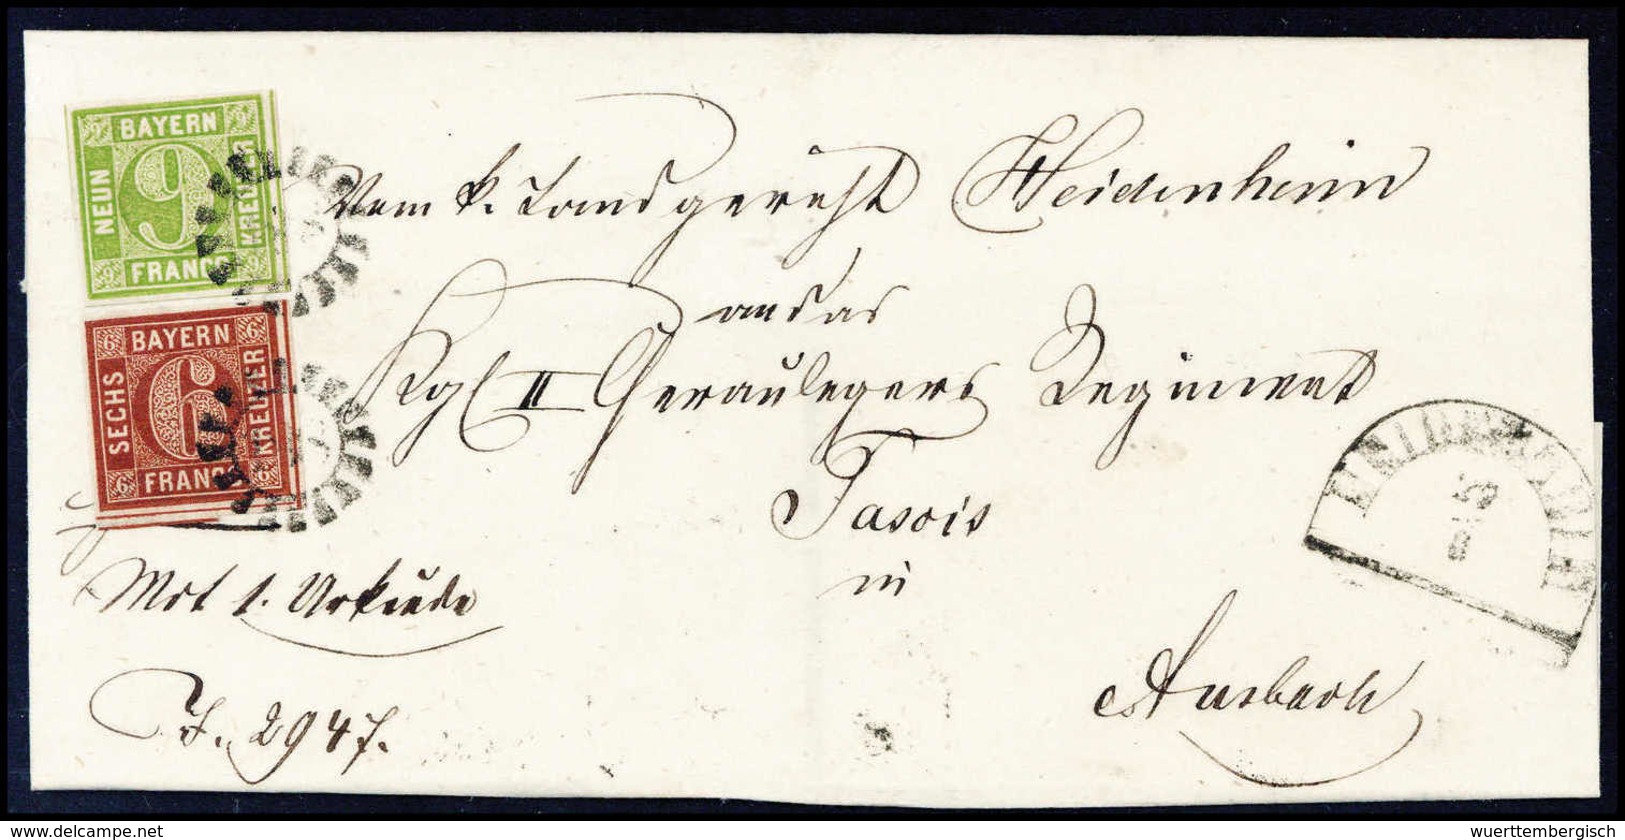 9 BAYERN 9
NEUN
9
KREUZER
9 FRANCO 9
6 BAYERN 6
SECHS
6
KREUZER
6 FRANCO 6
Vom k. Landgericht Heidenheim
an das
Kgl II Chevaulegers Regiment
Taxis
in
Ansbach
Mit 1. Urkunde
J. 2947.
delcampe.net
wuerttembergisch